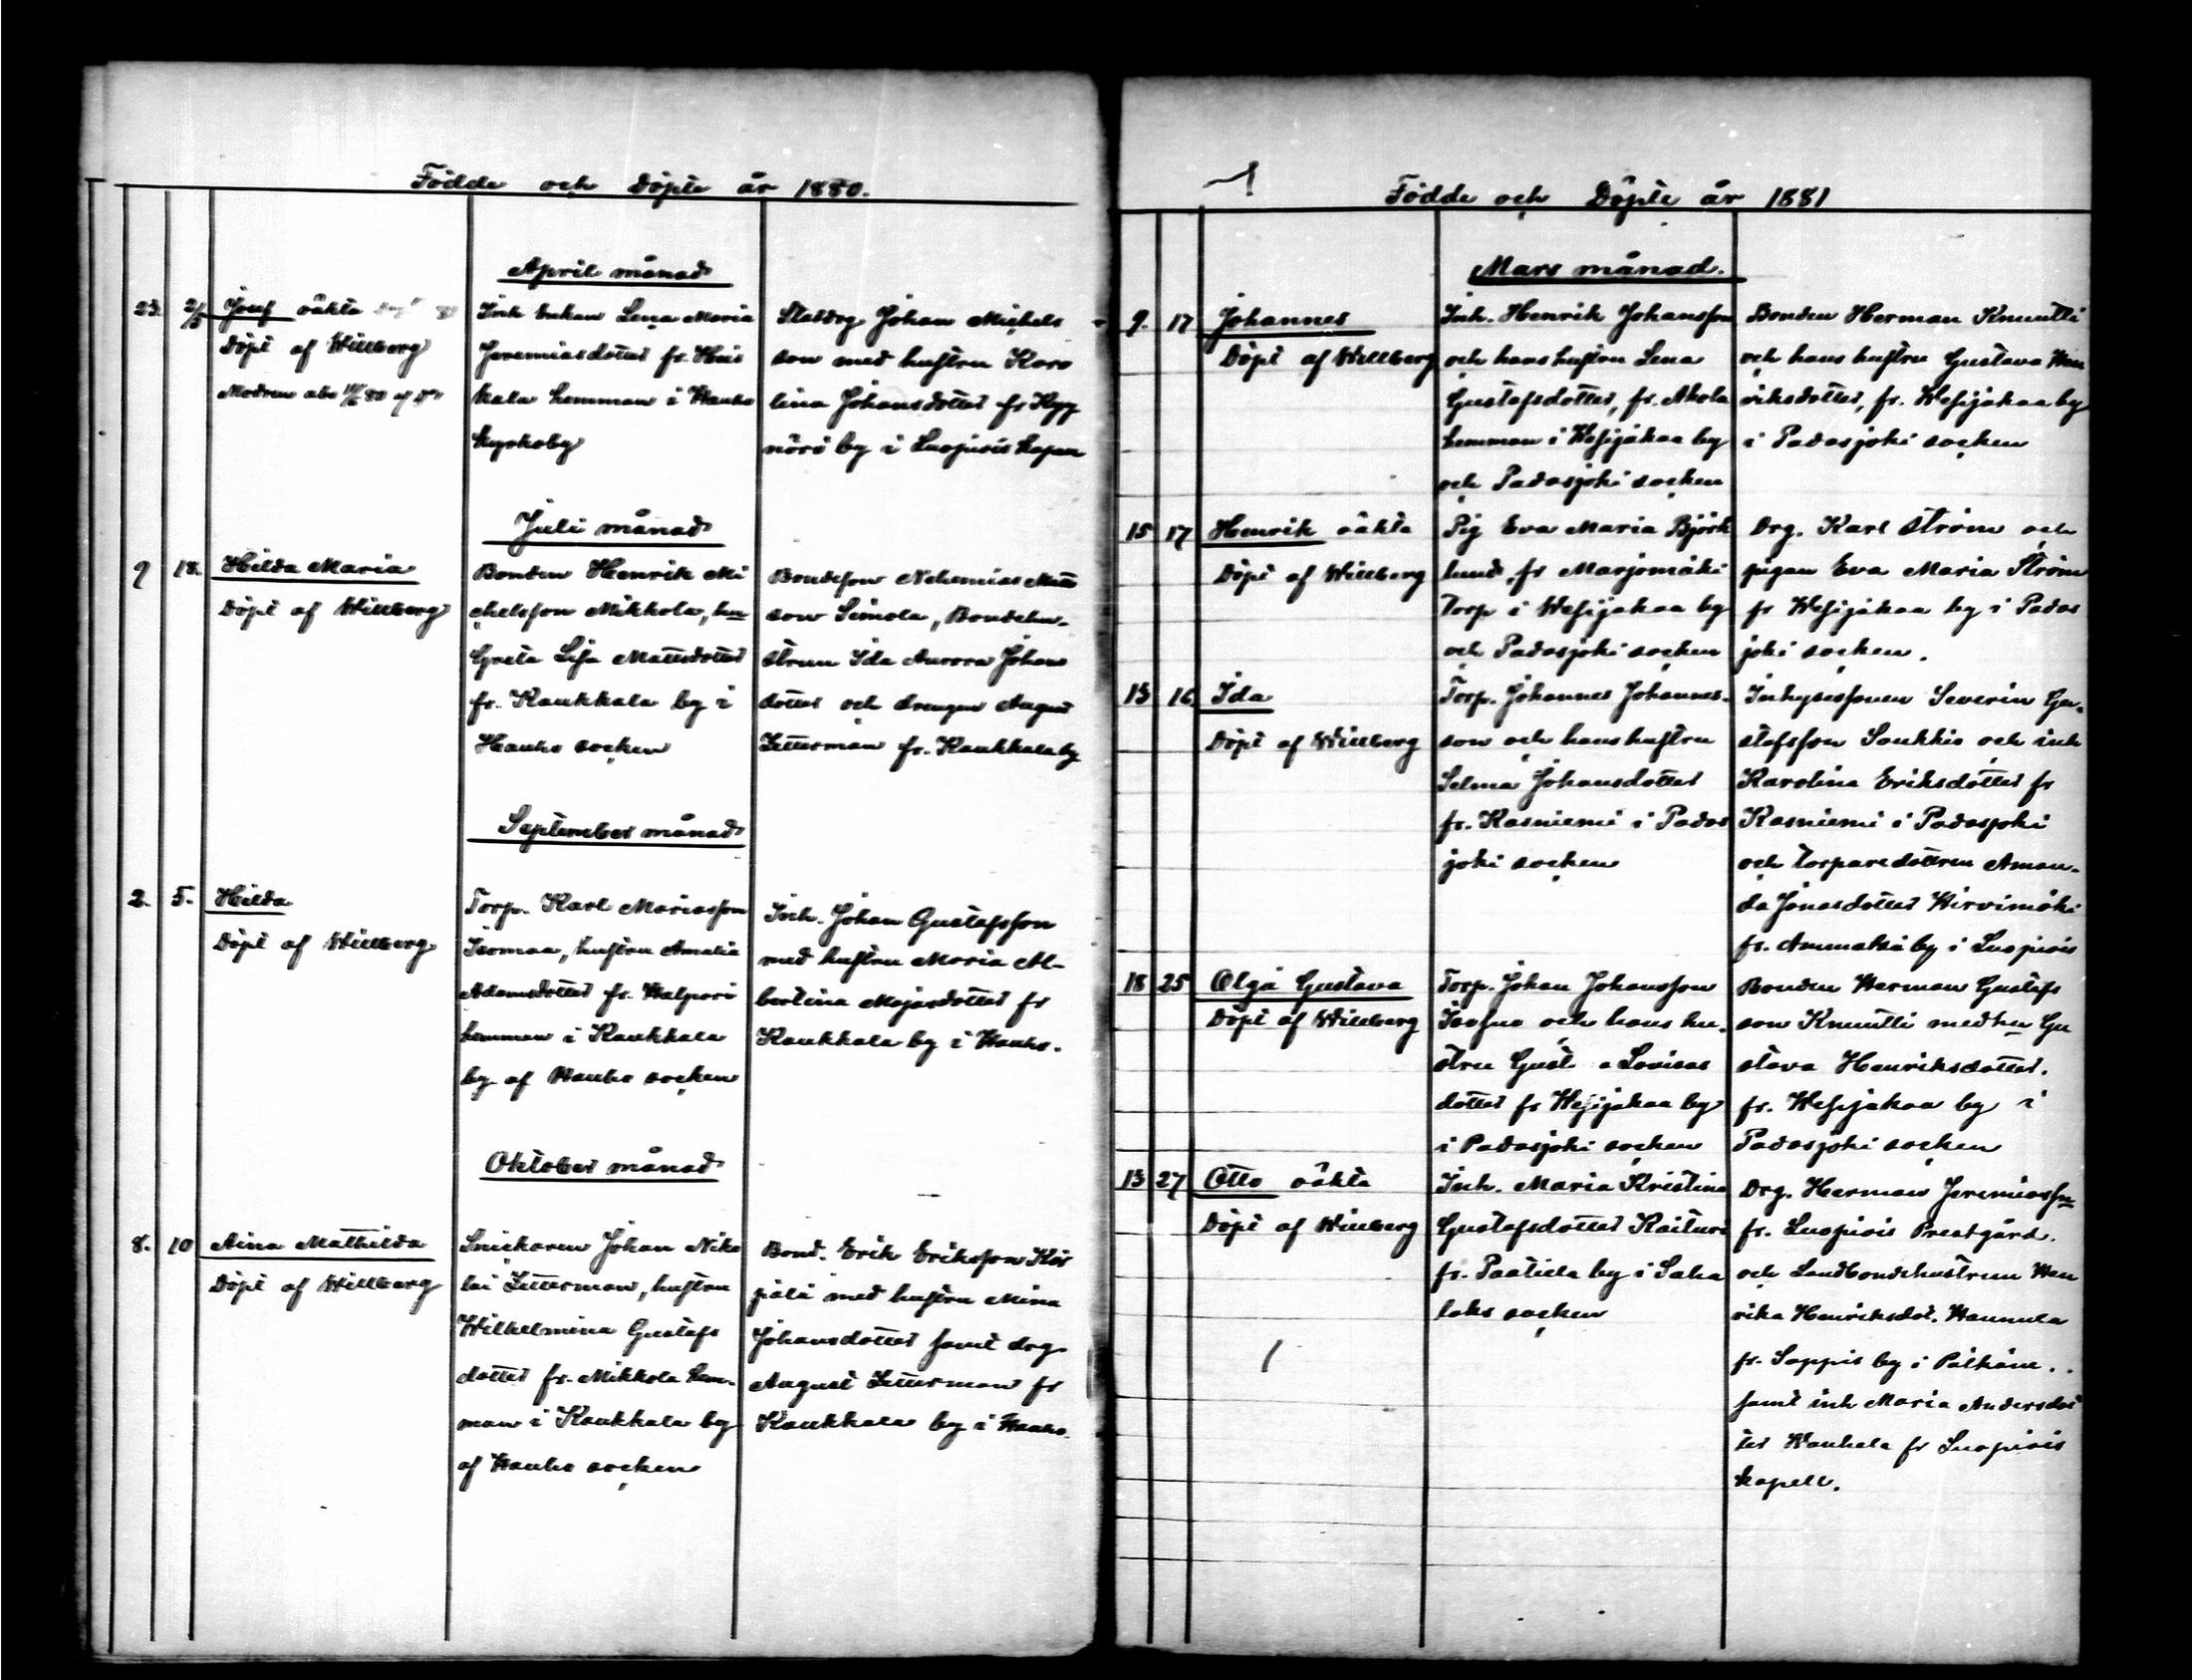 Födde och Döpte år 1880.
April månad
23. 2/5 Josef oäkta
Döpt af Willberg
Modren abs
Inh enkan Lena Maria
Jeremiasdotter fr. Heis
kala hemman i Hauho
kyrkoby
Statdrg Johan Michels
son med hustru Karo
lina Johansdotter fr Kyy
nörö by i Luopiois kapell
Juli månad
9 18. Hilda Maria
Döpt af Willberg
Bonden Henrik Mi
chelsson Mikkola, hu
Greta Lisa Mattsdotter
fr. Kaukkala by i
Hauho socken
Bondeson Nehemias Matts
son Simola, Bondehu-
strun Ida Aurora Johans
dotter och drengen August
Zetterman fr. Kaukkala by
September månad
2. 5. Hilda
Döpt af Willberg
Torp. Karl Mariasson
Isomaa, hustru Amalia
Adamsdotter fr. Walpori
hemman i Kaukkala
by af Hauho socken
Inh. Johan Gustafsson
med hustru Maria Al-
bertina Majasdotter fr
Kaukkala by i Hauho.
Oktober månad
8. 10 Aina Mathilda
Döpt af Willberg
Snickaren Johan Niko
lai Zetterman, hustru
Wilhelmina Gustafs
dotter fr. Mikkola hem-
man i Kaukkala by
af Hauho socken
Bond. Erik Eriksson Kör
pälä med hustru Mina
Johansdotter samt drg
August Zetterman fr
Kaukkala by i Hauho.
1
Födde och Döpte år 1881
Mars månad.
9. 17 Johannes
Döpt af Willberg
Inh. Henrik Johansson
och hans hustru Lena
Gustafsdotter, fr. Ahola
hemman i Wesijakaa by
och Padasjoki socken
Bonden Herman Knuutti
och hans hustru Gustava Hen
riksdotter, fr. Wesijakaa by
i Padasjoki socken
15 17 Henrik oäkta
Döpt af Willberg
Pig Eva Maria Björk
lund fr Marjomäki
Torp i Wesijakaa by
och Padasjoki socken
Drg. Karl Ström och
pigan Eva Maria Ström
fr Wesijakaa by i Padas
joki socken.
15 16 Ida
Döpt af Willberg
Torp. Johannes Johannes-
son och hans hustru
Selma Johansdotter
fr. Kasniemi i Padas
joki socken
Inhysessonen Severin Gu-
stafsson Soukkio och inh
Karolina Eriksdotter fr
Kasniemi i Padasjoki
och torparedottren Aman-
da Jonasdotter Hirvimäki
fr. Ammatsä by i Luopiois
18 25 Olga Gustava
Döpt af Willberg
Torp. Johan Johansson
Isosuo och hans hu-
stru Gust a Lovisas
dotter fr Wesijakaa by
i Padasjoki socken
Bonden Herman Gustafs
son Knuutti med hu Gu
stava Henriksdotter.
fr. Wesijakaa by i
Padasjoki socken
13 27 Otto oäkta
Döpt af Willberg
Inh. Maria Kristina
Gustafsdotter Raituri
fr. Paatiela by i Saha
laks socken
Drg. Herman Jeremiasson
fr. Luopiois Prestgård.
och Landbondehustrun Hen
rika Henriksdot. Hannula
fr. Sappis by i Pälkäne.
samt inh Maria Andersdot
ter Hauhala fr Luopiois
kapell.